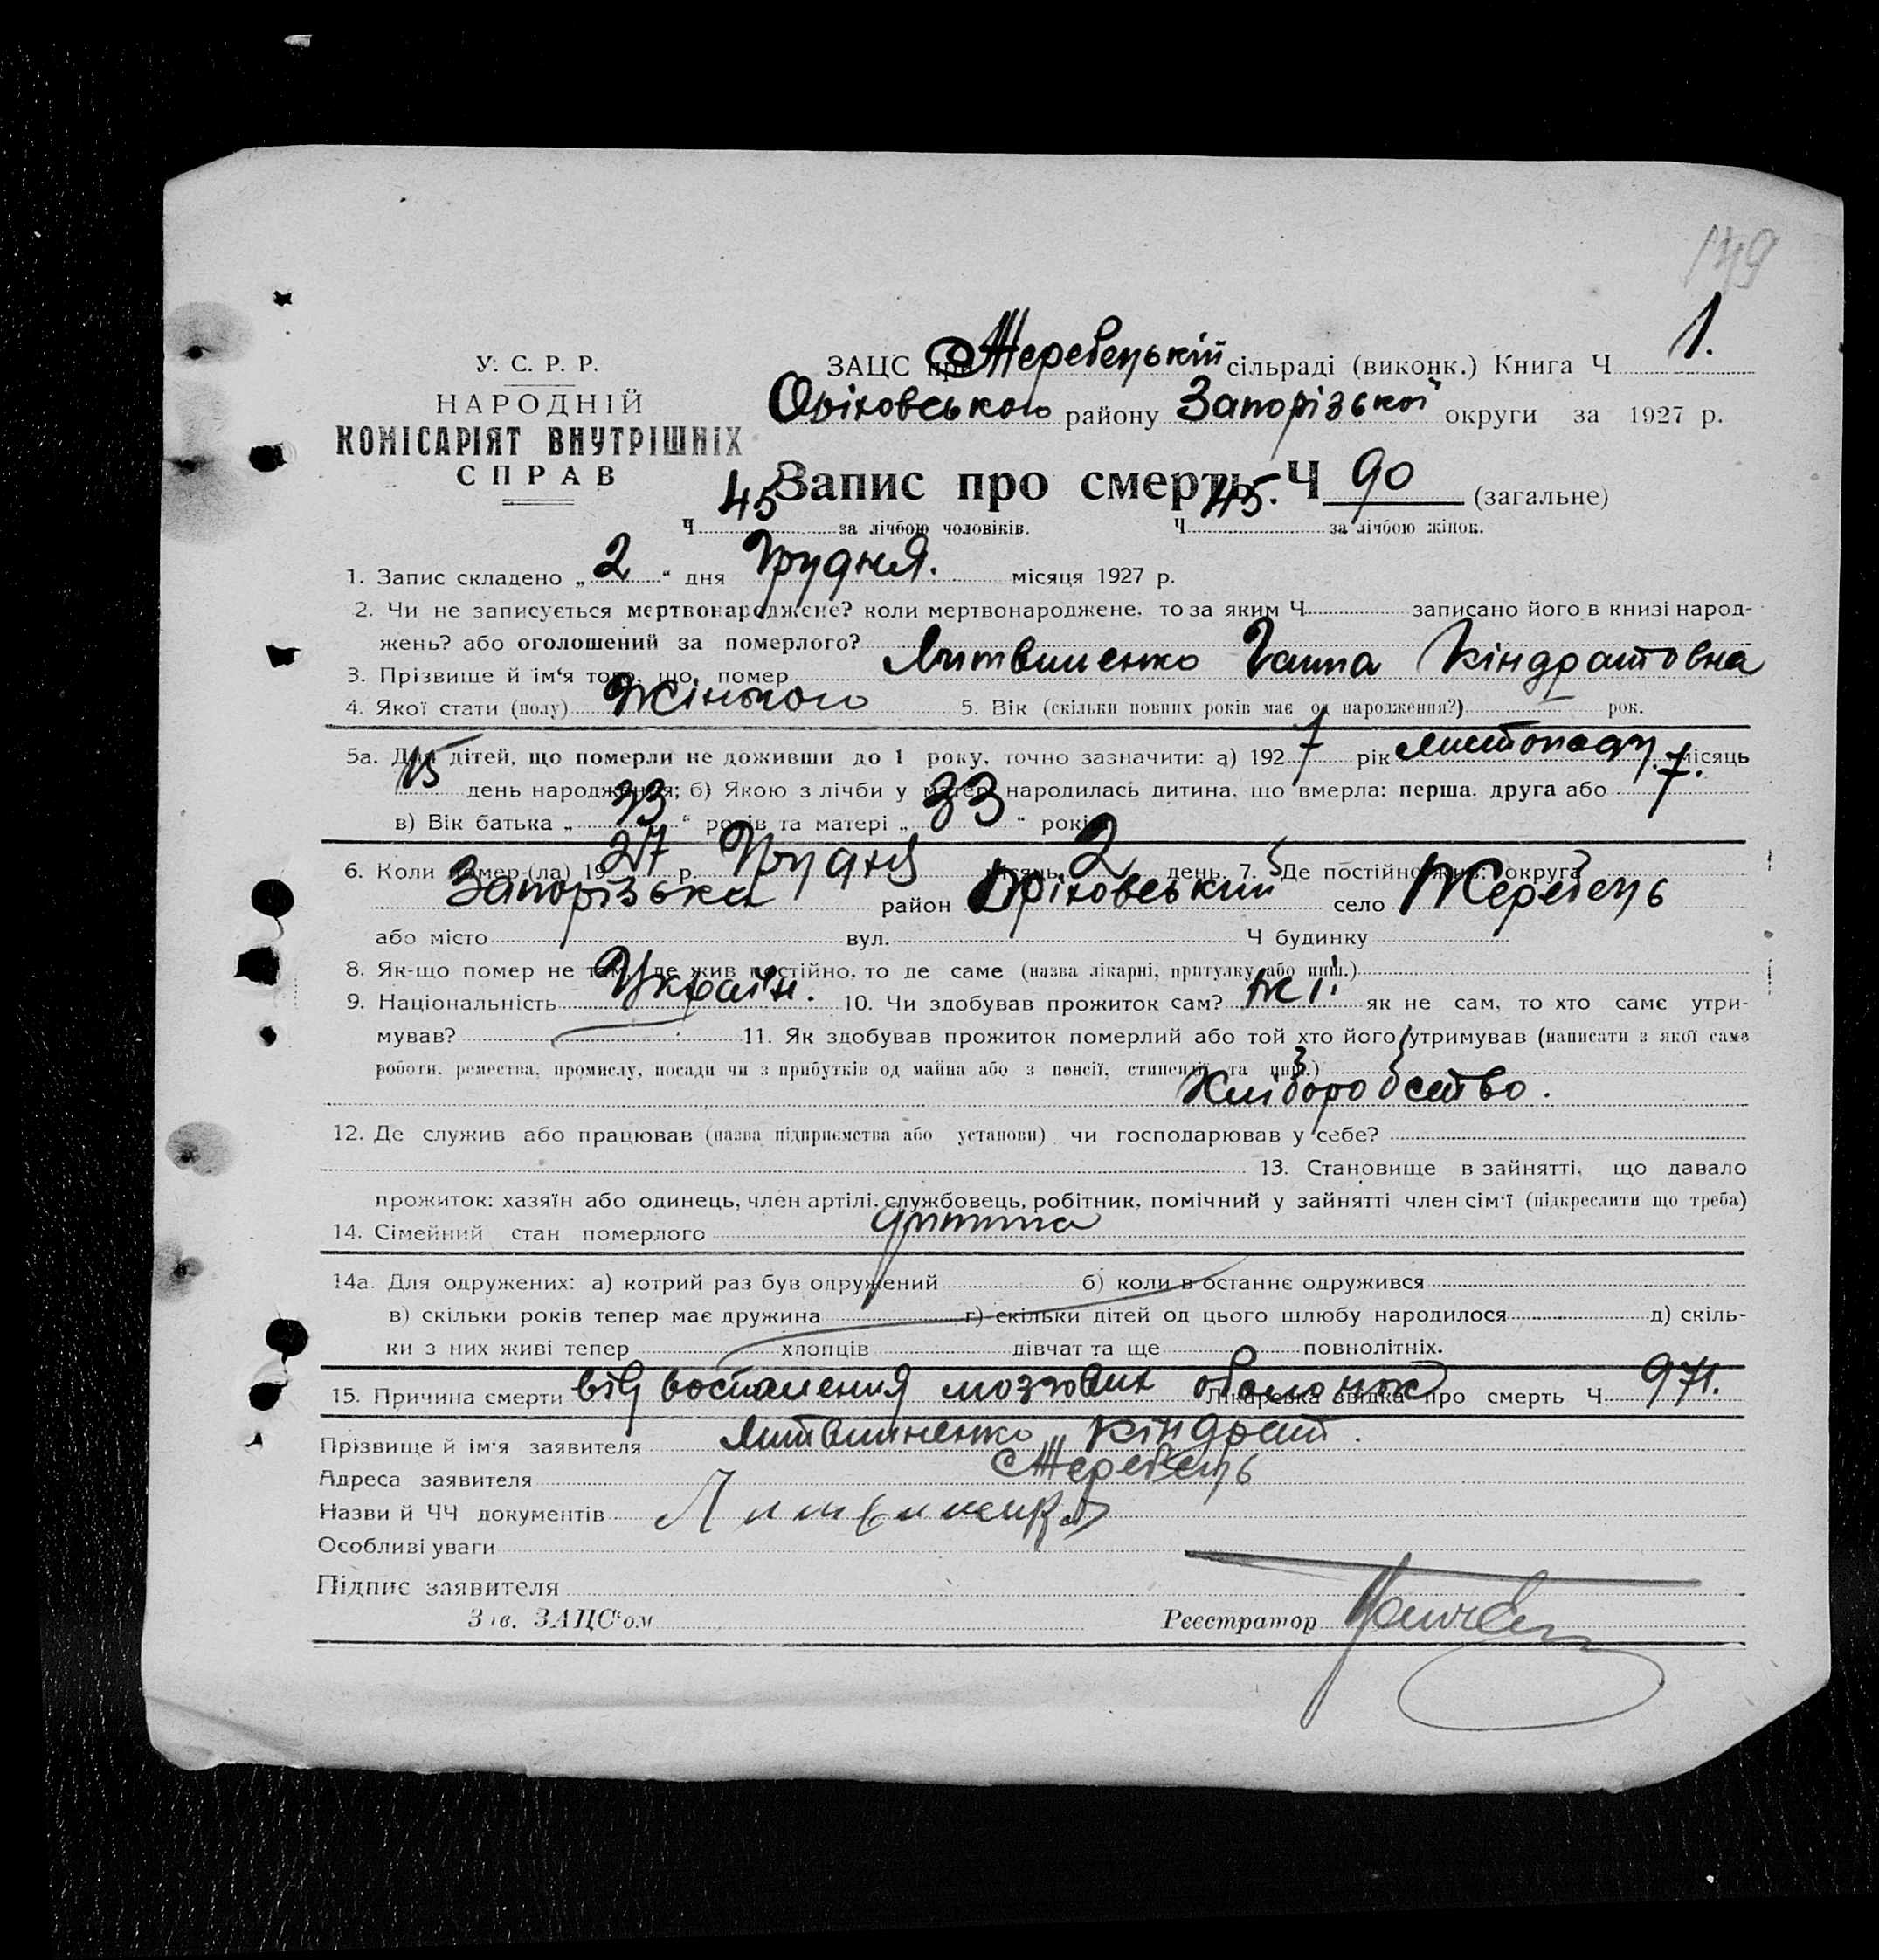 149
У. С. Р. Р.
НАРОДНІЙ
КОМІСАРІЯТ ВНУТРІШНІХ
СПРАВ
ЗАЦС при Жеребецькій сільраді (виконк.) Книга Ч 1.
Оріховського району Запорізької округи за 1927 р.
Запис про смерть Ч 90 (загальне)
Ч 45 за лічбою чоловіків. Ч 45. за лічбою жінок.
1. Запис складено „ 2 “ дня Грудня. місяця 1927 р.
2. Чи не записується мертвонароджене? коли мертвонароджене, то за яким Ч записано його в книзі народ-
жень? або оголошений за померлого?
3. Прізвище й ім‘я того, що помер Литвиненко Ганна Кіндратовна
4. Якої стати (полу) Жіночого 5. Вік (скільки повних років має од народження?) рок.
5а. Для дітей, що померли не доживши до 1 року, точно зазначити: а) 192 7 рік листопаду. місяць
15 день народження; б) Якою з лічби у матері народилась дитина, що вмерла: перша, друга або 7.
в) Вік батька „ 33 “ років та матері „ 33 “ років
6. Коли помер-(ла) 19 27 р. Грудня місяць 2 день. 7. Де постійно жив: округа
Запорізька район Оріховський село Жеребець
або місто вул. Ч будинку
8. Як-що помер не там, де жив постійно, то де саме (назва лікарні, притулку або инш.)
9. Національність Україн. 10. Чи здобував прожиток сам? Ні. як не сам, то хто саме утри-
мував? 11. Як здобував прожиток померлий або той хто його утримував (написати з якої саме
роботи, ремества, промислу, посади чи з прибутків од майна або з пенсії, стипендії та инш.)
Хліборобство.
12. Де служив або працював (назва підприємства або установи) чи господарював у себе?
13. Становище в зайнятті, що давало
прожиток: хазяїн або одинець, член артілі, службовець, робітник, помічний у зайнятті член сім‘ї (підкреслити що треба)
14. Сімейний стан померлого дитина
14а. Для одружених: а) котрий раз був одружений б) коли в останнє одружився
в) скільки років тепер має дружина г) скільки дітей од цього шлюбу народилося д) скіль-
ки з них живі тепер хлопців дівчат та ще повнолітніх.
15. Причина смерти від воспаления мозгових оболочок Лікарська звідка про смерть Ч 971.
Прізвище й ім‘я заявителя Литвиненко Кіндрат.
Адреса заявителя Жеребець
Назви й ЧЧ документів Литвиненко
Особливі уваги
Підпис заявителя
Зав. ЗАЦС‘ом Реєстратор